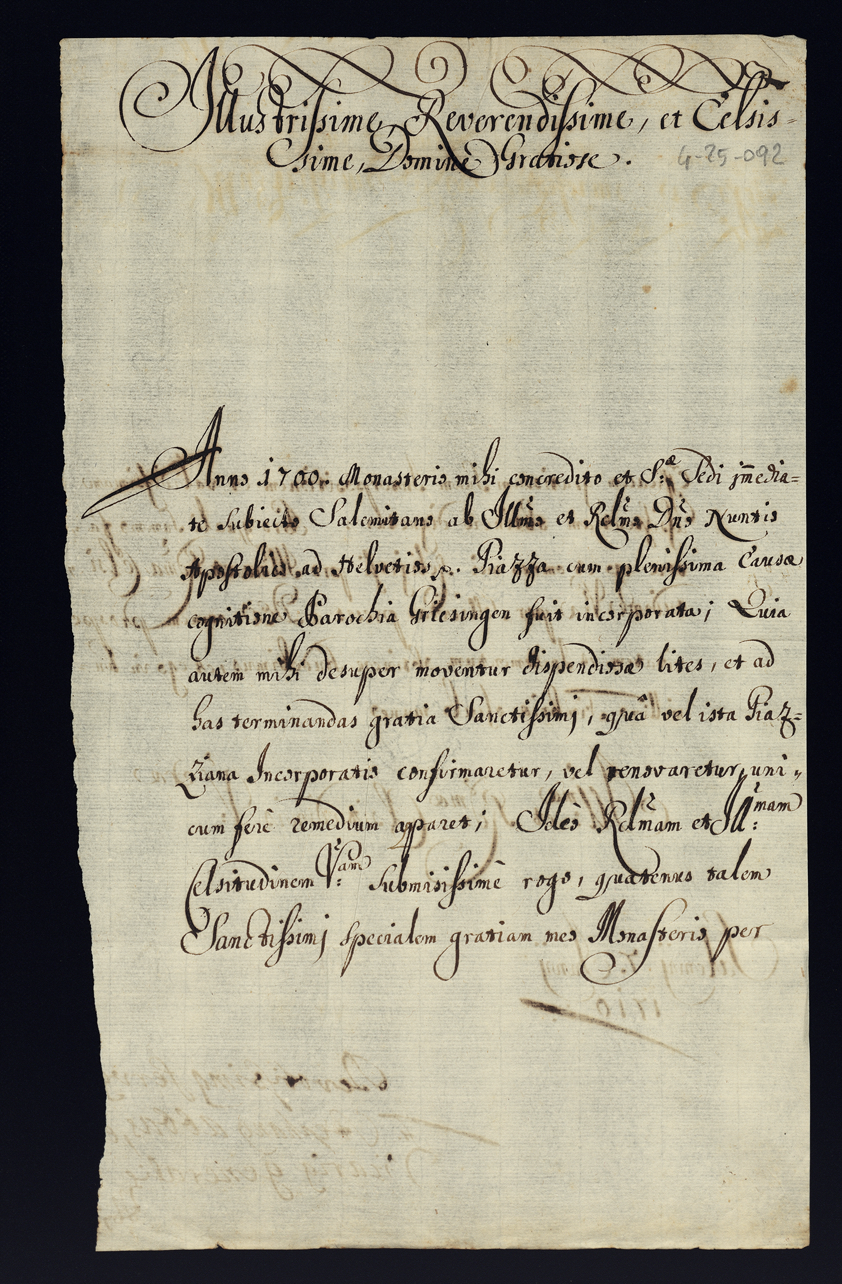 Illustrissime, Reverendissime, et Celsis-
sime, Domine Gratiose.
4-25-092
Anno 1700. Monasterio mihi concredito et S:æ Sedi im̃edia=
te subiecto Salemitano ab Ill̃mo et Rd̃mo Dño Nuntio
Apostolico ad Helvetios p. Piazza cum plenissima Causæ
cognitione Parochia Griesingen fuit incorporata; Quia
autem mihi desuper moventur dispendiosæ lites, et ad
has terminandas gratia Sanctissimj, quâ vel ista Piaz=
ziana Incorporatio confirmaretur, vel renovaretur, uni=
cum ferè remedium apparet; Ideò Rd̃mam et Ill:mam
Celsitudinem V:am submisissimè rogo, quatenus talem
Sanctissimj specialem gratiam meo Monasterio per